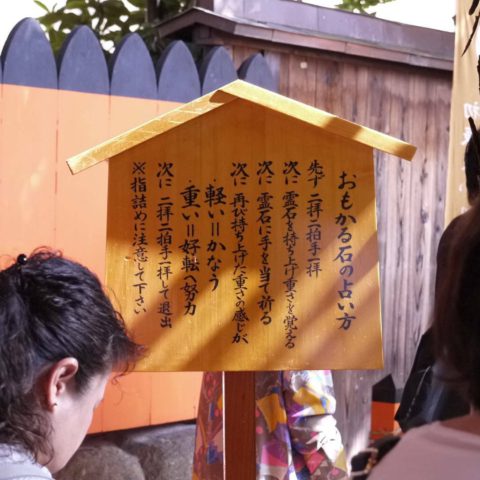 おもかる石の占い方
先ず 二拝二拍手一拝
次に 霊石を持ち上げ重さを覚える
次に 霊石に手を当て祈る
次に 再び持ち上げた重さの感じが、
・軽い＝かなう
・重い＝好転へ努力
次に 二拝二拍手一拝して退出
※指詰めに注意して下さい